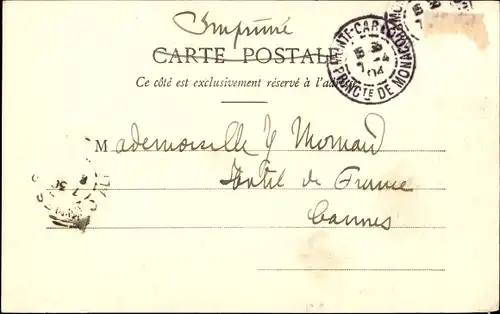 Imprimé
CARTE POSTALE
Ce côté est exclusivement réservé à l'adresse
MONTE-CARLO
PRINCTE DE MONACO
04
Mademoiselle Y Mornard
Hôtel de France
Cannes